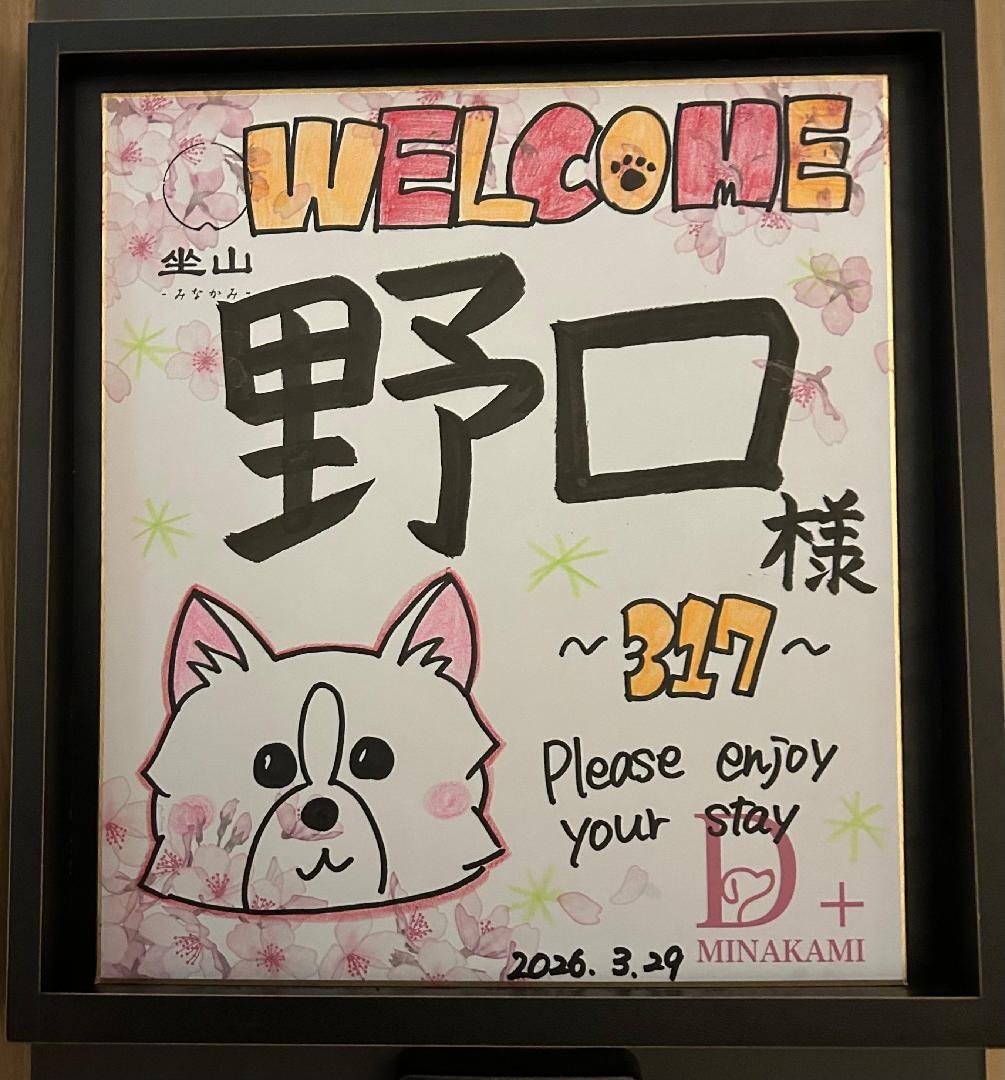 WELCOME
坐山
-みなかみ-
野口
様
~317~
Please enjoy
your stay
D+
MINAKAMI
2026.3.29